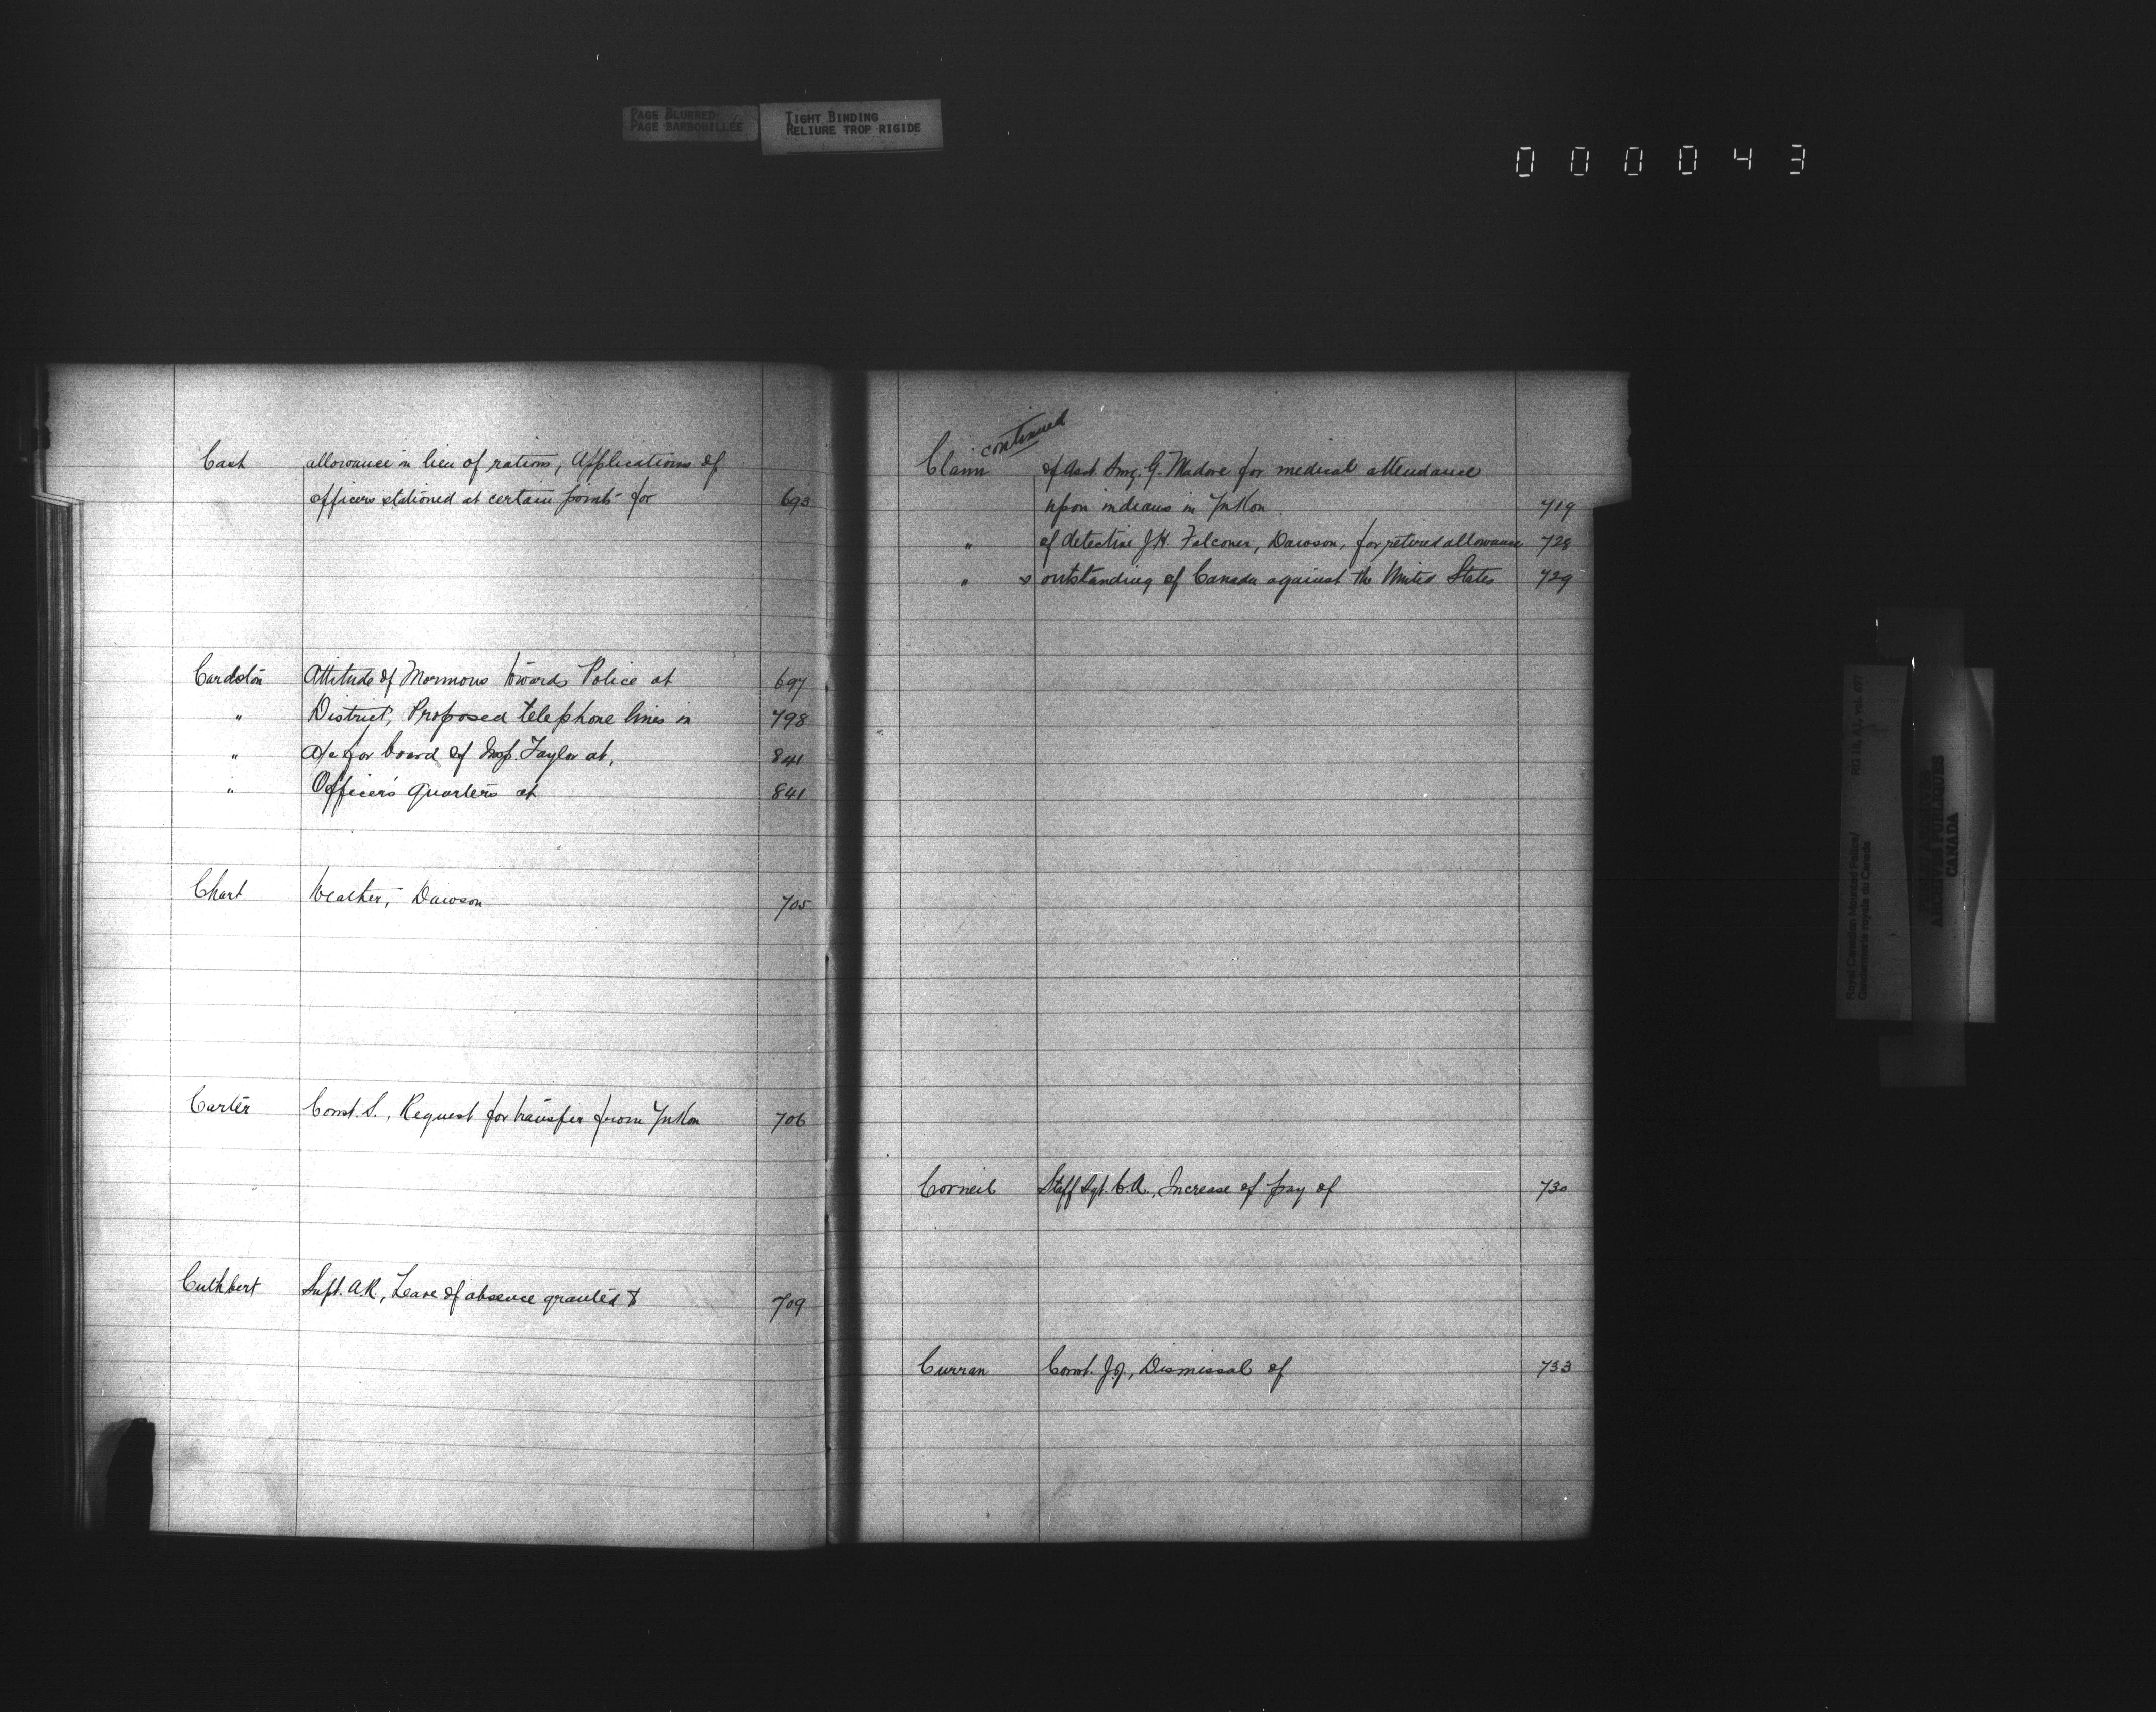 PAGE BLURRED
PAGE BARBOUILLÉE
TIGHT BINDING
RELIURE TROP RIGIDE
000043
Cash allowance in lieu of rations, Applications of
officers stationed at certain points for 693
Cardston Attitude of Mormons towards Police at 697
" District, Proposed telephone lines in 798
" a/c for board of Insp. Taylor at, 841
" Officers quarters at 841
Chart Weather, Dawson 705
Carter Const. S., Request for transfer from Yukon 706
Cuthbert Supt. A.R., Leave of absence granted to 709
continued
Claim of Asst. Surg. G. Madore for medical attendance
upon indians in Yukon 719
" of detective J.H. Falconer, Dawson, for retired allowance 728
" s outstanding of Canada against the United States 729
Corneil Staff Sgt. C.A., Increase of pay of 730
Curran Const. J.J., Dismissal of 733
Royal Canadian Mounted Police/
Gendarmerie royale du Canada
RG 18, A1, vol. 697
PUBLIC ARCHIVES
ARCHIVES PUBLIQUES
CANADA